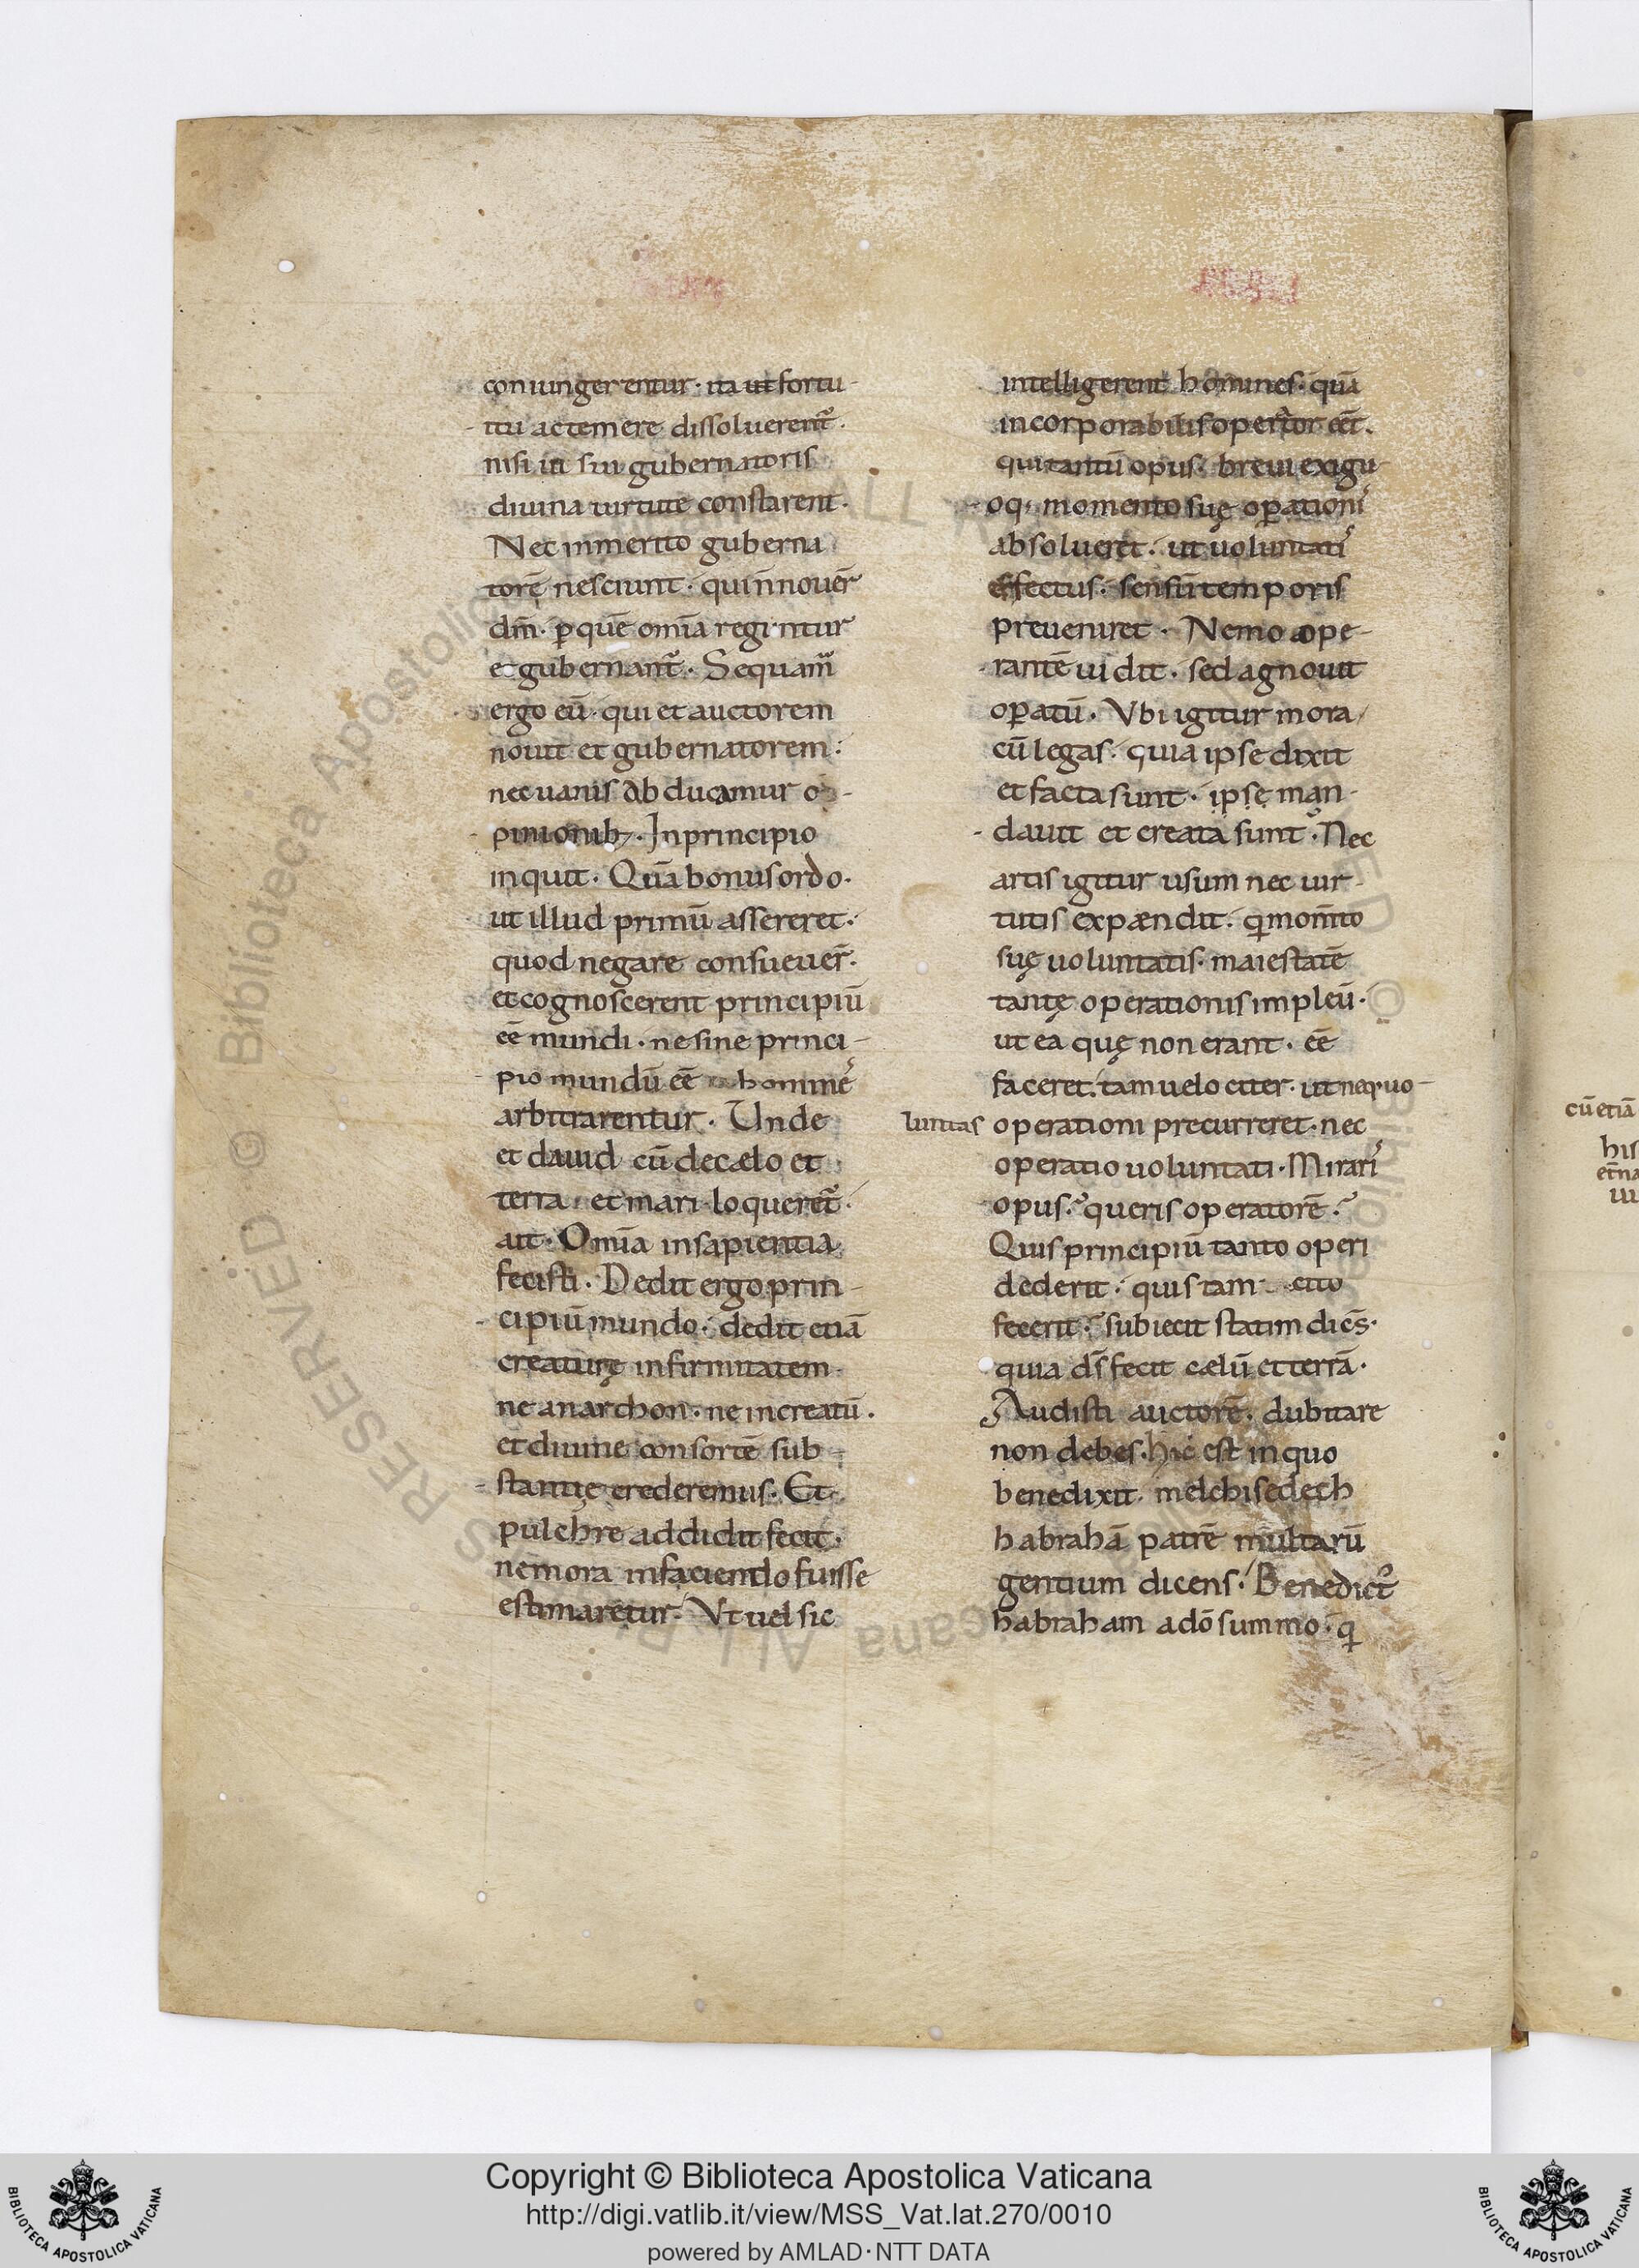 coniungerentur· ita ut fortu-
itu ac temere dissoluerent᷑·
nisi in sui gubernatoris
diuina uirtute constarent·
Nec inmerito guberna
torē nesciunt· qui n̄ nouer̄
dm̄· ꝑ quē om̄ia regintur
et gubernant᷑· Sequam᷑
ergo eū· qui et auctorem
nouit et gubernatorem·
nec uanis abducamur o-
pinionib;· In principio
inquit· Quā bonus ordo·
ut illud primū assereret·
quod negare consueuer̄·
et cognoscerent principiū
eē mundi· ne sine princi-
pio mundū eē homines
arbitrarentur· Unde
et dauid cū de cælo et
terra· et mari loqueret᷑·
ait· Om̄ia in sapientia
fecisti· Dedit ergo prin-
cipiū mundo· dedit etiā
creaturę infirmitatem·
ne anarchon· ne increatū·
et diuine consortē sub
stantię crederemus· Et
pulchre addidit fecit·
ne mora in faciendo fuisse
estimaretur· Vt uel sic
intelligerent homines· quā
incorporabilis operator eēt·
qui tantū opus· breui exigu
oq; momento suę oꝑationis
absolueret· ut uoluntatis
effectus· sensū temporis
preueniret· Nemo ope-
rantē uidit· sed agnouit
oꝑatū· Vbi igitur mora
cū legas· quia ipse dixit
et facta sunt· ipse man-
dauit et creata sunt· Nec
artis igitur usum nec uir-
tutis expændit· qi mom̄to
suę uoluntatis· maiestatē
tantę operationis impleū·
ut ea quę non erant· eē
faceret· tam uelociter· ut neq; uo-
luntas operationi precurreret· nec
operatio uoluntati· Miraris
opus· queris operatorē·
Quis principiū tanto operi
dederit· quis tam cito
fecerit· subiecit statim dicēs·
quia ds̄ fecit cælū et terrā·
Audisti auctorē· dubitare
non debes· hic est in quo
benedixit melchisedech
habrahā patrē multarū
gentium dicens· Benedict᷒
habraham a dō summo· qi
cū etiā
his
Copyright © Biblioteca Apostolica Vaticana
http://digi.vatlib.it/view/MSS_Vat.lat.270/0010
powered by AMLAD·NTT DATA
BIBLIOTECA APOSTOLICA VATICANA
BIBLIOTECA APOSTOLICA VATICANA